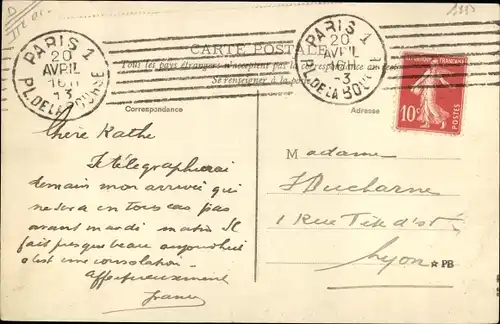 D
1333
PARIS 1
20
AVRIL
16H
-3
PL. DE LA BOURSE
PARIS 1
20
AVRIL
16H
-3
PL. DE LA BOURSE
CARTE POSTALE
Tous les pays étrangers n'acceptent pas la correspondance au
Se renseigner à la poste
Correspondance
Adresse
10c
POSTES
Chère Kathe
Je télégraphierai
demain mon arrivée qui
ne sera en tous cas pas
avant mardi matin. Il
fait presque beau aujourd'hui
c'est une consolation.
Affectueusement
Franz
Madame
Ducharne
1 Rue Tête d'or
Lyon
PB